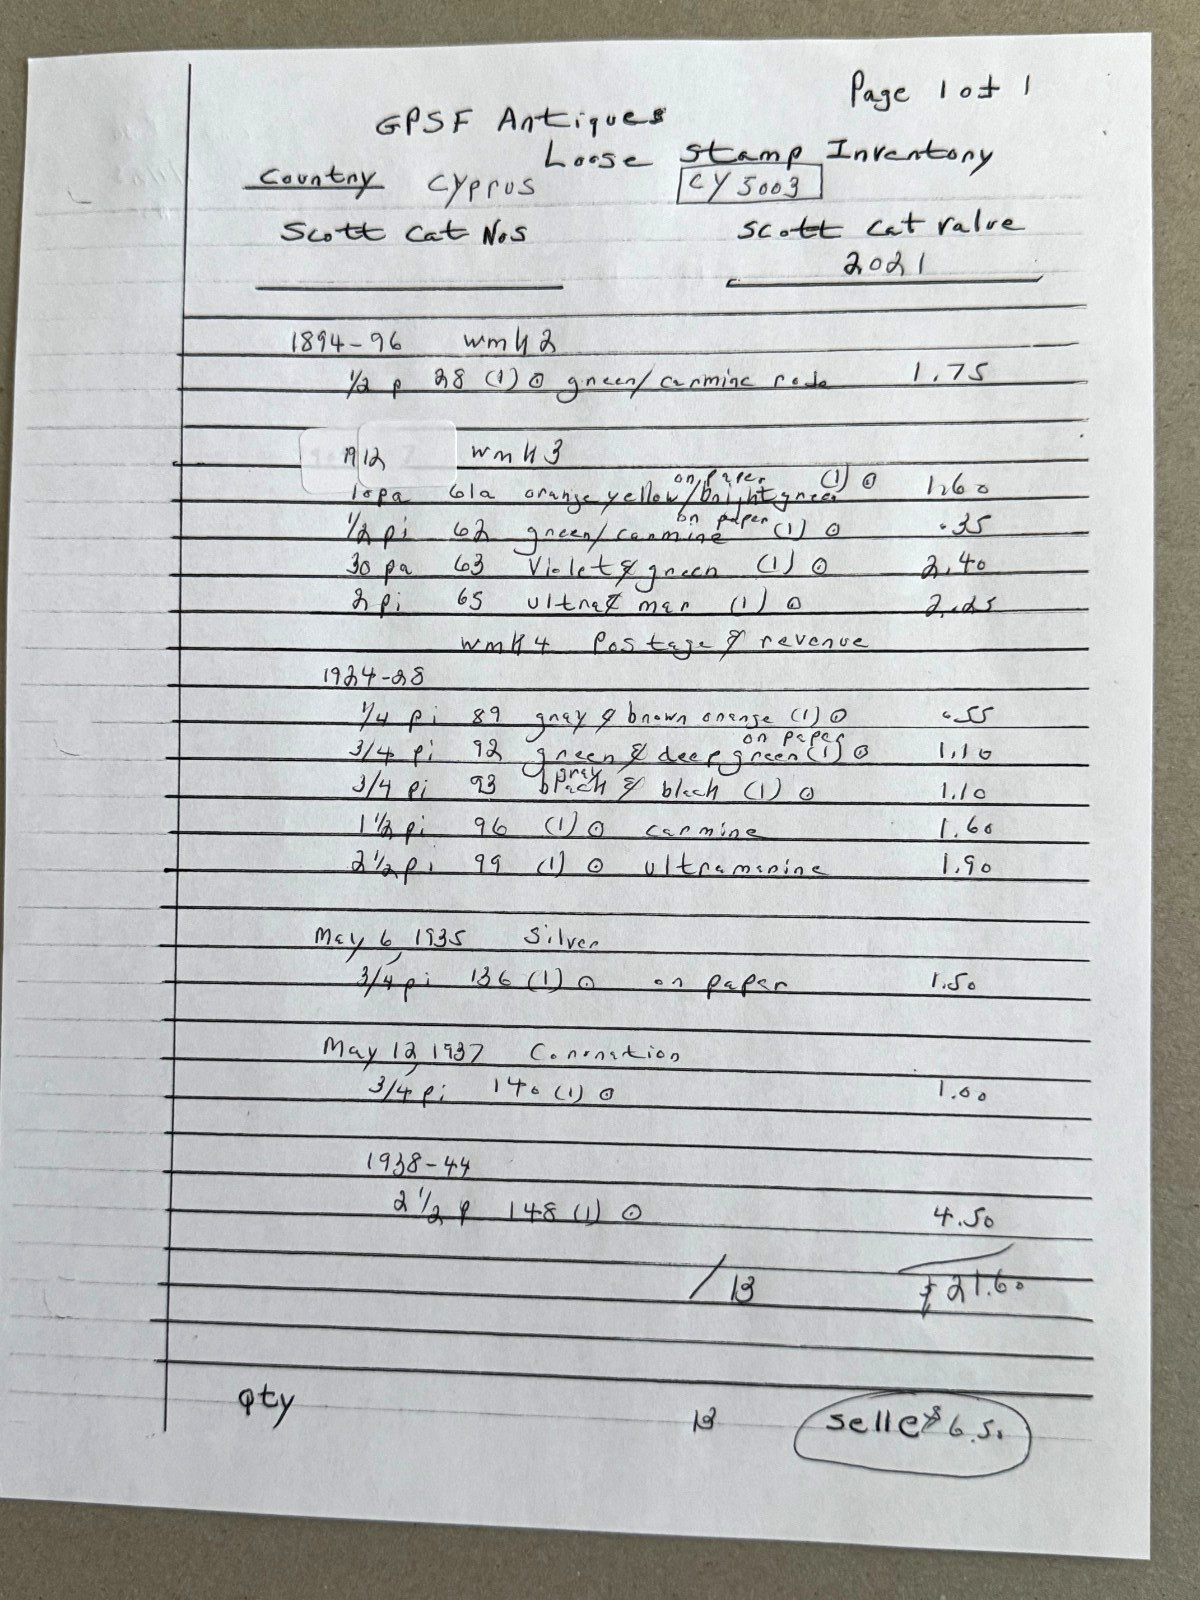 Page 1 of 1
GPSF Antiques
Loose Stamp Inventory
Country Cyprus CY5003
Scott Cat Nos Scott Cat Value
2021
1894-96 wmk 2
1/2 p 28 (1) ⊙ green/carmine rose 1.75
1912 wmk 3
10pa 61a orange yellow/bright green on paper (1) ⊙ 1.60
1/2 pi 62 green/carmine on paper (1) ⊙ .35
30 pa 63 Violet & green (1) ⊙ 2.40
2 pi 65 ultra & mar (1) ⊙ 2.25
wmk 4 Postage & revenue
1924-28
1/4 pi 89 gray & brown orange (1) ⊙ .55
3/4 pi 92 green & deep green on paper (1) ⊙ 1.10
3/4 pi 93 gray black & black (1) ⊙ 1.10
1 1/2 pi 96 (1) ⊙ carmine 1.60
2 1/2 pi 99 (1) ⊙ ultramarine 1.90
May 6, 1935 Silver
3/4 pi 136 (1) ⊙ on paper 1.50
May 12, 1937 Coronation
3/4 pi 140 (1) ⊙ 1.00
1938-44
2 1/2 p 148 (1) ⊙ 4.50
/13 $21.60
Qty 13 selle $6.50